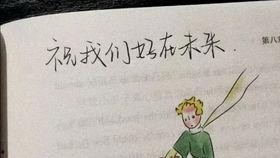 祝我们好在未来.
第八章